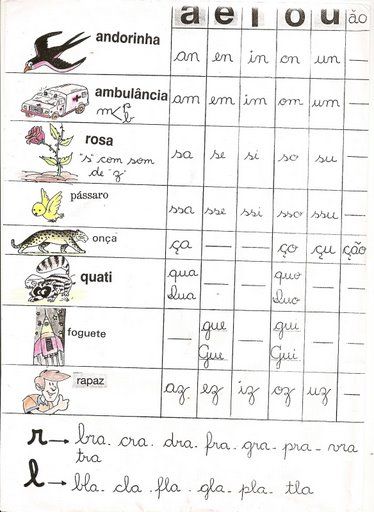 a e i o u ão
andorinha an en in on un —
ambulância am em im om um —
m < p b
rosa sa se si so su —
"s" com som de "z"
pássaro ssa sse ssi sso ssu —
onça ça — — ço çu ção
quati qua — — quo — —
Qua Quo
foguete — gue — gui — —
Gue Gui
rapaz az ez iz oz uz —
r → bra. cra. dra. fra. gra. pra. vra
tra
l → bla. cla. fla. gla. pla. tla